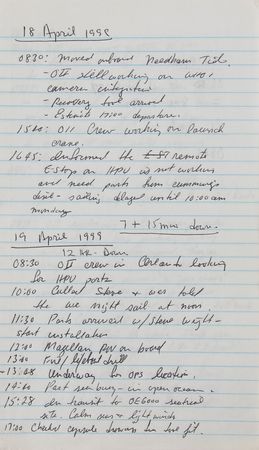 18 April 1999
0830: Moved onboard Needham Tide.
- OII still working on
camera integration
- Recovery tool arrived
- Estimate 1700 departure.
1540: OII Crew working on launch
crane.
1645: Informed the remote
E-Stop on HPU is not working
and need parts from cummings
disl - sailing delayed until 10:00am
monday
7 + 15 min down.
19 April 1999
12 hr. Down
08:30 OII crew in Orlando looking
for HPU parts
10:00 Called Steve & was told
the we might sail at noon
11:30 Parts arrived w/ Steve Wright -
start installation
12:00 Magellan ROV on board
13:40 Fire / lifeboat drill
13:08 Underway for OPS location
14:20 Past sea buoy - in open ocean.
15:28 In transit to OE6000
site. Calm seas & light winds
17:00 Checked capsule for fit.